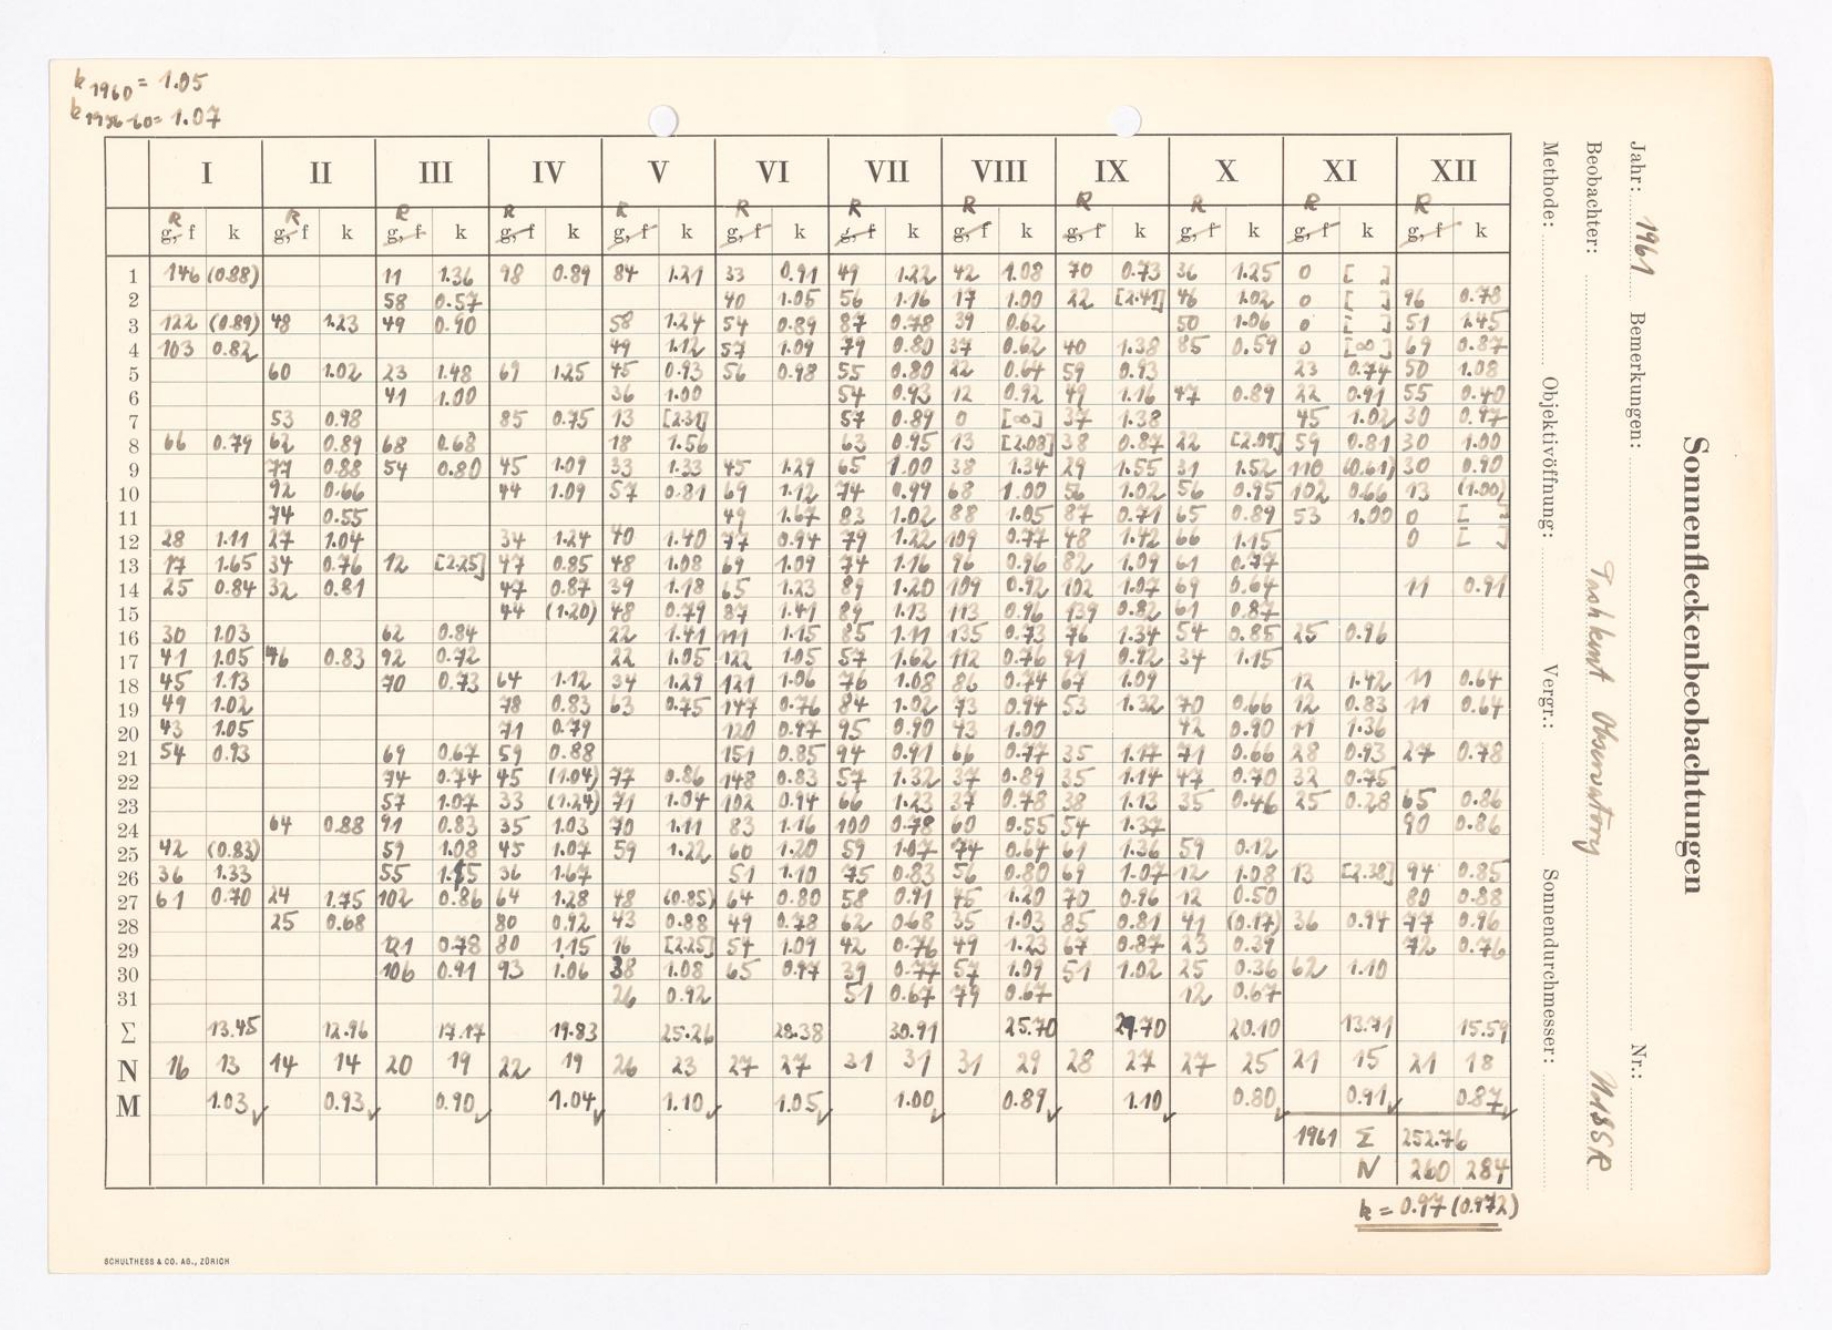 k 1960 = 1.05
k 1956-60 = 1.07
I II III IV V VI VII VIII IX X XI XII
R R R R R R R R R R R R
g, f k g, f k g, f k g, f k g, f k g, f k g, f k g, f k g, f k g, f k g, f k g, f k
1 146 (0.88) 11 1.36 98 0.89 84 1.21 33 0.91 49 1.22 42 1.08 70 0.73 36 1.25 0 [ ]
2 58 0.57 40 1.05 56 1.16 17 1.00 22 [2.41] 46 1.02 0 [ ] 96 0.78
3 122 (0.89) 48 1.23 49 0.90 58 1.24 54 0.89 87 0.78 39 0.62 50 1.06 0 [ ] 51 1.45
4 103 0.82 49 1.12 57 1.09 79 0.80 37 0.62 40 1.38 85 0.59 0 [∞] 69 0.87
5 60 1.02 23 1.48 69 1.25 45 0.93 56 0.98 55 0.80 22 0.64 59 0.93 23 0.74 50 1.08
6 41 1.00 36 1.00 54 0.93 12 0.92 49 1.16 47 0.89 22 0.91 55 0.40
7 53 0.98 85 0.75 13 [2.31] 57 0.89 0 [∞] 37 1.38 45 1.02 30 0.97
8 66 0.79 62 0.89 68 0.68 18 1.56 63 0.95 13 [2.08] 38 0.87 22 [2.09] 59 0.81 30 1.00
9 77 0.88 54 0.80 45 1.09 33 1.33 45 1.29 65 1.00 38 1.34 29 1.55 31 1.52 110 (0.61) 30 0.90
10 92 0.66 44 1.09 57 0.81 69 1.12 74 0.99 68 1.00 56 1.02 56 0.95 102 0.66 13 (1.00)
11 74 0.55 49 1.67 83 1.02 88 1.05 87 0.71 65 0.89 53 1.00 0 [ ]
12 28 1.11 27 1.04 34 1.24 40 1.40 77 0.94 79 1.22 109 0.77 48 1.42 66 1.15 0 [ ]
13 17 1.65 34 0.76 12 [2.25] 47 0.85 48 1.08 69 1.09 74 1.16 96 0.96 82 1.09 61 0.77
14 25 0.84 32 0.81 47 0.87 39 1.18 65 1.23 89 1.20 109 0.92 102 1.07 69 0.64 11 0.91
15 44 (1.20) 48 0.79 87 1.41 89 1.13 113 0.96 139 0.82 61 0.87
16 30 1.03 62 0.84 22 1.41 111 1.15 85 1.11 135 0.73 76 1.34 54 0.85 25 0.96
17 41 1.05 46 0.83 92 0.72 22 1.05 122 1.05 57 1.62 112 0.76 91 0.92 34 1.15
18 45 1.13 70 0.73 64 1.12 34 1.29 121 1.06 76 1.08 86 0.74 67 1.09 12 1.42 11 0.64
19 49 1.02 78 0.83 63 0.75 147 0.76 84 1.02 73 0.94 53 1.32 70 0.66 12 0.83 11 0.64
20 43 1.05 71 0.79 120 0.97 95 0.90 43 1.00 42 0.90 11 1.36
21 54 0.93 69 0.67 59 0.88 151 0.85 94 0.91 66 0.77 35 1.17 71 0.66 28 0.93 27 0.78
22 74 0.74 45 (1.04) 77 0.86 148 0.83 57 1.32 37 0.89 35 1.14 47 0.70 32 0.75
23 57 1.07 33 (1.24) 71 1.04 102 0.94 66 1.23 37 0.78 38 1.13 35 0.46 25 0.28 65 0.86
24 64 0.88 91 0.83 35 1.03 70 1.11 83 1.16 100 0.78 60 0.55 54 1.37 90 0.86
25 42 (0.83) 59 1.08 45 1.07 59 1.22 60 1.20 59 1.07 74 0.64 61 1.36 59 0.12
26 36 1.33 55 1.15 36 1.67 51 1.10 75 0.83 56 0.80 69 1.07 12 1.08 13 [2.38] 94 0.85
27 61 0.70 24 1.75 102 0.86 64 1.28 48 (0.85) 64 0.80 58 0.91 45 1.20 70 0.96 12 0.50 80 0.88
28 25 0.68 80 0.92 43 0.88 49 0.78 62 0.68 35 1.03 85 0.81 41 (0.17) 36 0.94 77 0.96
29 121 0.78 80 1.15 16 [2.25] 54 1.09 42 0.76 49 1.23 67 0.87 23 0.39 72 0.76
30 106 0.91 93 1.06 38 1.08 65 0.97 39 0.77 57 1.09 51 1.02 25 0.36 62 1.10
31 26 0.92 51 0.67 79 0.67 12 0.67
Σ 13.45 12.96 17.17 19.83 25.26 28.38 30.91 25.70 29.70 20.10 13.71 15.59
N 16 13 14 14 20 19 22 19 26 23 27 27 31 31 31 29 28 27 27 25 21 15 21 18
M 1.03 0.93 0.90 1.04 1.10 1.05 1.00 0.89 1.10 0.80 0.91 0.87
1961 Σ 252.76
N 260 284
k = 0.97 (0.972)
SCHULTHESS & CO. AG., ZÜRICH
Sonnenfleckenbeobachtungen
Jahr: 1961 Bemerkungen: Nr.:
Beobachter: Tashkent Observatory UdSSR
Methode: Objektivöffnung: Vergr.: Sonnendurchmesser: